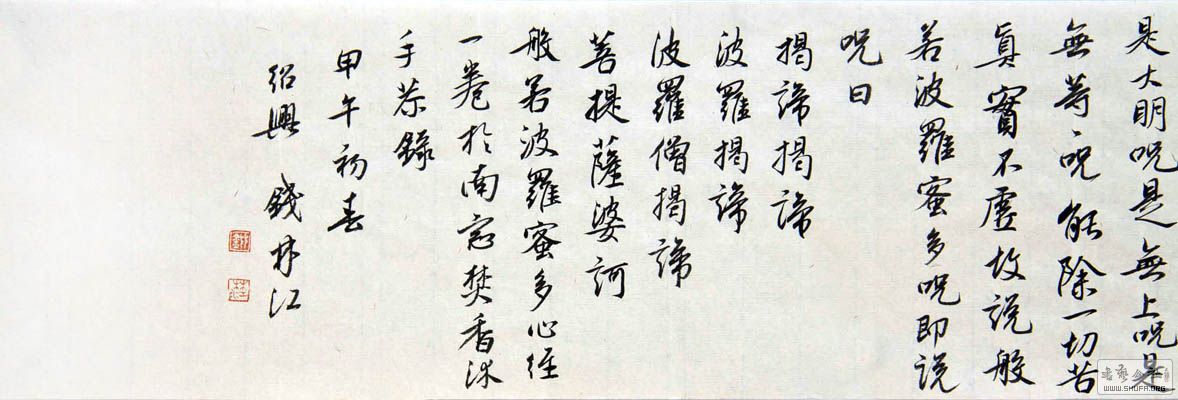 是大明呪是無上呪是
無等々呪能除一切苦
真實不虛故說般
若波羅蜜多呪即說
呪曰
揭諦揭諦
波羅揭諦
波羅僧揭諦
菩提薩婆訶
般若波羅蜜多心經
一卷於南窗焚香沐
手恭錄
甲午初春
紹興 錢林江
WWW.SHUFA.ORG